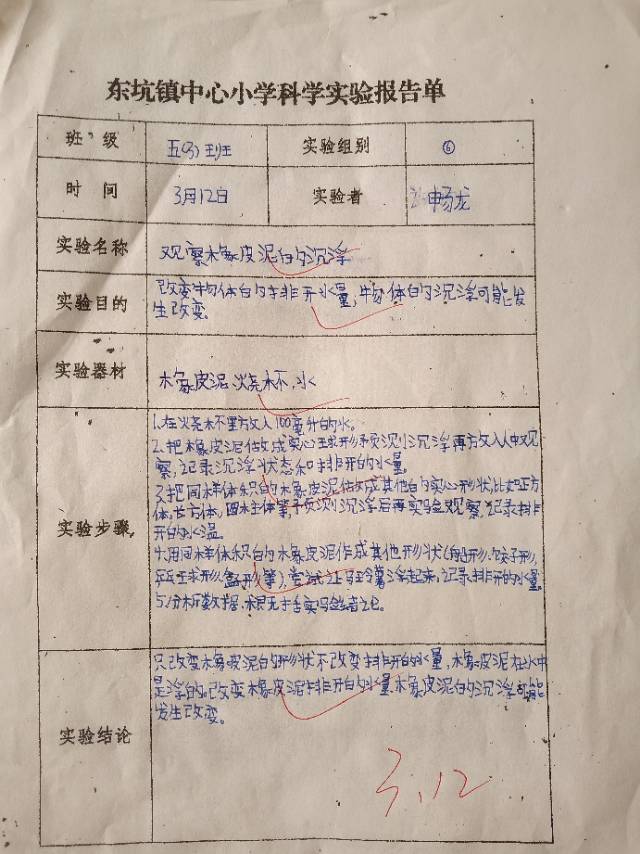 东坑镇中心小学科学实验报告单
班 级 五(3)班 实验组别 ⑥
时 间 3月12日 实验者 畅龙
实验名称 观察橡皮泥的沉浮
实验目的 改变物体的排开水量,物体的沉浮可能发
生改变。
实验器材 橡皮泥 烧杯.水
实验步骤
1.在烧杯里方入100毫升的水。
2.把橡皮泥做成实心球形预测沉浮再方入水中观
察,记录沉浮状态和排开的水量。
3.把同样体积的橡皮泥做成其他的实心形状,比如正方
体,长方体,圆柱体等,预测沉浮后再实验观察,记录排
开的水温。
4.用同样体积的橡皮泥作成其他形状(船形、饺子形,
乒乓球形,盒形等),尝试让马铃薯浮起来,记录排开的水量
5.分析数据,
实验结论
只改变橡皮泥的形状不改变排开的水量,橡皮泥在水中
是浮的.改变橡皮泥排开的水量.橡皮泥的沉浮可能
发生改变。
3.12